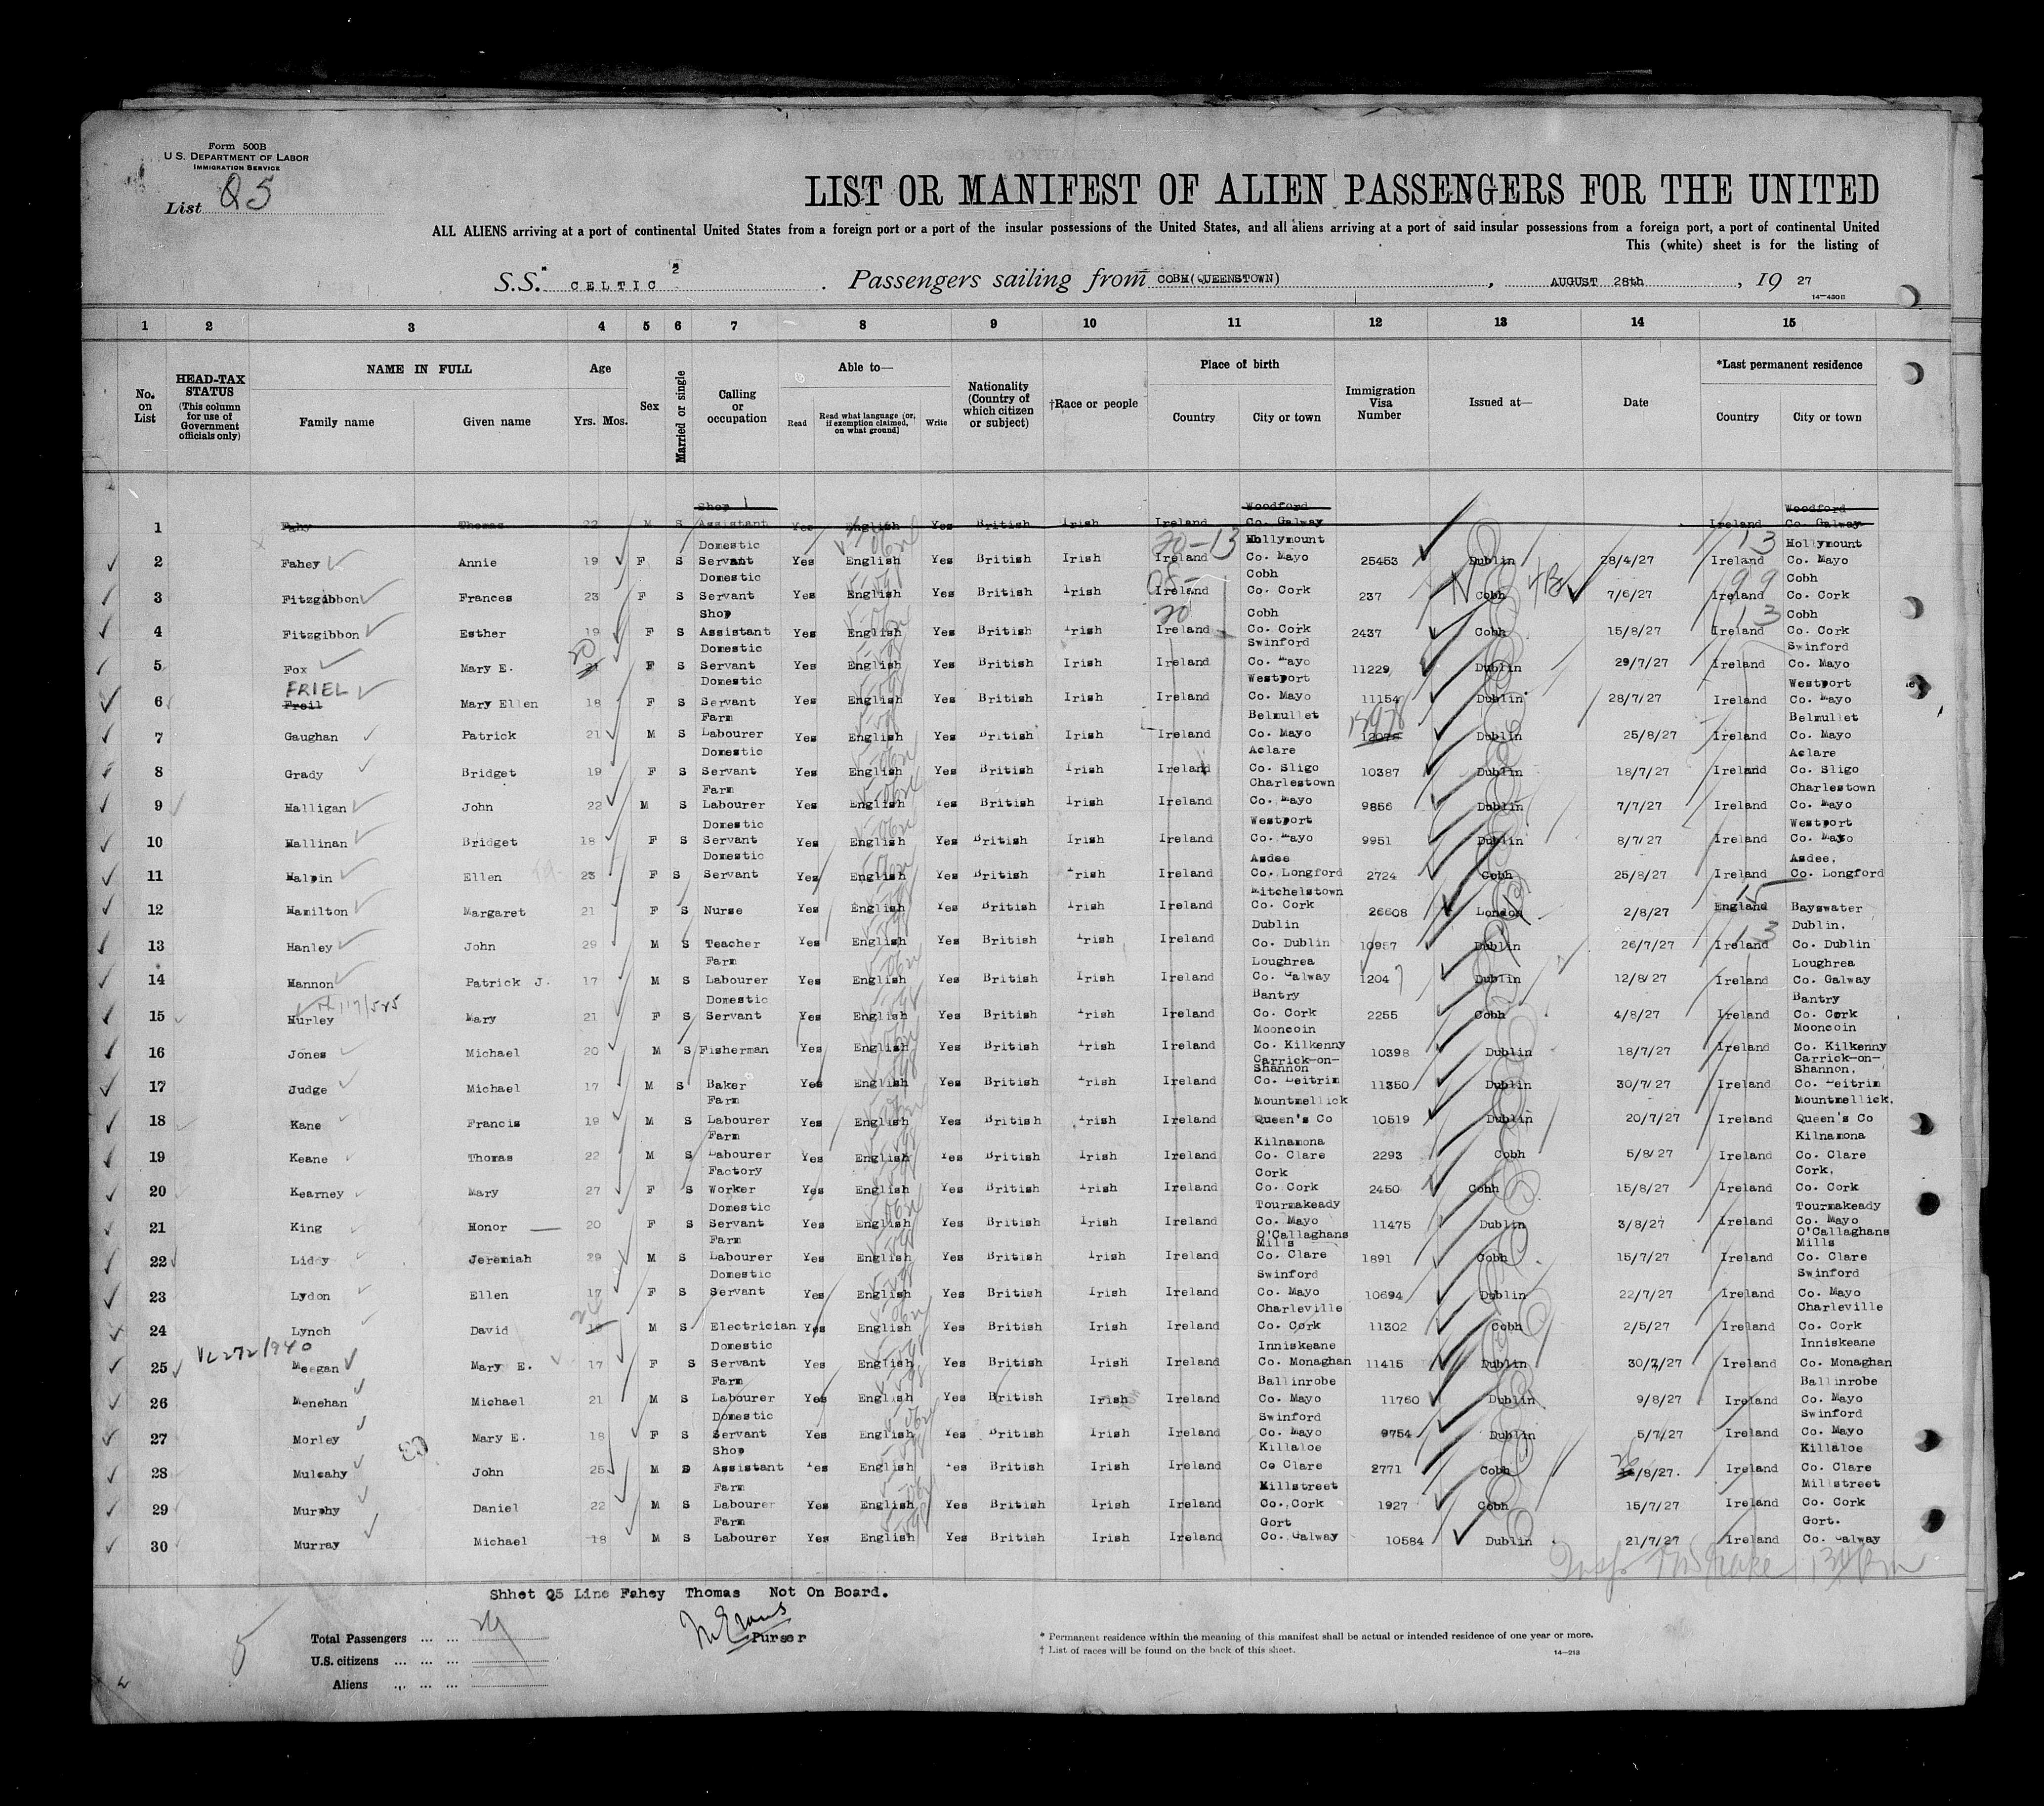 Form 500B
U.S. DEPARTMENT OF LABOR
IMMIGRATION SERVICE
List Q5
LIST OR MANIFEST OF ALIEN PASSENGERS FOR THE UNITED
ALL ALIENS arriving at a port of continental United States from a foreign port or a port of the insular possessions of the United States, and all aliens arriving at a port of said insular possessions from a foreign port, a port of continental United
This (white) sheet is for the listing of
S.S. "CELTIC 2" Passengers sailing from COBH(QUEENSTOWN), AUGUST 28th, 19 27
14-430B
1 2 3 4 5 6 7 8 9 10 11 12 13 14 15
No. on List
HEAD-TAX STATUS (This column for use of Government officials only)
NAME IN FULL
Family name Given name
Age Yrs. Mos.
Sex
Married or single
Calling or occupation
Able to—
Read
Read what language [or, if exemption claimed, on what ground]
Write
Nationality (Country of which citizen or subject)
†Race or people
Place of birth
Country City or town
Immigration Visa Number
Issued at—
Date
*Last permanent residence
Country City or town
1 Fahy Thomas 22 M S Shop Assistant Yes English Yes British Irish Ireland Woodford Co. Galway Ireland Woodford Co. Galway
2 Fahey Annie 19 F S Domestic Servant Yes English Yes British Irish Ireland Hollymount Co. Mayo 25453 Dublin 28/4/27 Ireland Hollymount Co. Mayo
3 Fitzgibbon Frances 23 F S Domestic Servant Yes English Yes British Irish Ireland Cobh Co. Cork 237 Cobh 7/6/27 Ireland Cobh Co. Cork
4 Fitzgibbon Esther 19 F S Shop Assistant Yes English Yes British Irish Ireland Cobh Co. Cork 2437 Cobh 15/8/27 Ireland Cobh Co. Cork
5 Fox Mary E. 20 21 F S Domestic Servant Yes English Yes British Irish Ireland Swinford Co. Mayo 11229 Dublin 29/7/27 Ireland Swinford Co. Mayo
6 FRIEL Freil Mary Ellen 18 F S Domestic Servant Yes English Yes British Irish Ireland Westport Co. Mayo 11154 Dublin 28/7/27 Ireland Westport Co. Mayo
7 Gaughan Patrick 21 M S Farm Labourer Yes English Yes British Irish Ireland Belmullet Co. Mayo Dublin 25/8/27 Ireland Belmullet Co. Mayo
8 Grady Bridget 19 F S Domestic Servant Yes English Yes British Irish Ireland Aclare Co. Sligo 10387 Dublin 18/7/27 Ireland Aclare Co. Sligo
9 Halligan John 22 M S Farm Labourer Yes English Yes British Irish Ireland Charlestown Co. Mayo 9856 Dublin 7/7/27 Ireland Charlestown Co. Mayo
10 Hallinan Bridget 18 F S Domestic Servant Yes English Yes British Irish Ireland Westport Co. Mayo 9951 Dublin 8/7/27 Ireland Westport Co. Mayo
11 Halpin Ellen 23 F S Domestic Servant Yes English Yes British Irish Ireland Asdee Co. Longford 2724 Cobh 25/8/27 Ireland Asdee. Co. Longford
12 Hamilton Margaret 21 F S Nurse Yes English Yes British Irish Ireland Mitchelstown Co. Cork 26608 London 2/8/27 England Bayswater
13 Hanley John 29 M S Teacher Yes English Yes British Irish Ireland Dublin Co. Dublin 10957 Dublin 26/7/27 Ireland Dublin. Co. Dublin
14 Hannon Patrick J. 17 M S Farm Labourer Yes English Yes British Irish Ireland Loughrea Co. Galway 12047 Dublin 12/8/27 Ireland Loughrea Co. Galway
15 Hurley Mary 21 F S Domestic Servant Yes English Yes British Irish Ireland Bantry Co. Cork 2255 Cobh 4/8/27 Ireland Bantry Co. Cork
16 Jones Michael 20 M S Fisherman Yes English Yes British Irish Ireland Mooncoin Co. Kilkenny 10398 Dublin 18/7/27 Ireland Mooncoin Co. Kilkenny
17 Judge Michael 17 M S Baker Yes English Yes British Irish Ireland Carrick-on-Shannon Co. Leitrim 11350 Dublin 30/7/27 Ireland Carrick-on-Shannon. Co. Leitrim
18 Kane Francis 19 M S Farm Labourer Yes English Yes British Irish Ireland Mountmellick Queen's Co 10519 Dublin 20/7/27 Ireland Mountmellick. Queen's Co
19 Keane Thomas 22 M S Farm Labourer Yes English Yes British Irish Ireland Kilnamona Co. Clare 2293 Cobh 5/8/27 Ireland Kilnamona Co. Clare
20 Kearney Mary 27 F S Factory Worker Yes English Yes British Irish Ireland Cork Co. Cork 2450 Cobh 15/8/27 Ireland Cork. Co. Cork
21 King Honor 20 F S Domestic Servant Yes English Yes British Irish Ireland Tourmakeady Co. Mayo 11475 Dublin 3/8/27 Ireland Tourmakeady Co. Mayo
22 Liddy Jeremiah 29 M S Farm Labourer Yes English Yes British Irish Ireland O'Callaghans Mills Co. Clare 1891 Cobh 15/7/27 Ireland O'Callaghans Mills Co. Clare
23 Lydon Ellen 17 F S Domestic Servant Yes English Yes British Irish Ireland Swinford Co. Mayo 10694 Dublin 22/7/27 Ireland Swinford Co. Mayo
24 Lynch David M S Electrician Yes English Yes British Irish Ireland Charleville Co. Cork 11302 Cobh 2/5/27 Ireland Charleville Co. Cork
25 Meegan Mary E. 17 F S Domestic Servant Yes English Yes British Irish Ireland Inniskeane Co. Monaghan 11415 Dublin 30/7/27 Ireland Inniskeane Co. Monaghan
26 Menehan Michael 21 M S Farm Labourer Yes English Yes British Irish Ireland Ballinrobe Co. Mayo 11760 Dublin 9/8/27 Ireland Ballinrobe Co. Mayo
27 Morley Mary E. 18 F S Domestic Servant Yes English Yes British Irish Ireland Swinford Co. Mayo 9754 Dublin 5/7/27 Ireland Swinford Co. Mayo
28 Mulcahy John 25 M S Shop Assistant Yes English Yes British Irish Ireland Killaloe Co Clare 2771 Cobh /8/27. Ireland Killaloe Co. Clare
29 Murphy Daniel 22 M S Farm Labourer Yes English Yes British Irish Ireland Millstreet Co. Cork 1927 Cobh 15/7/27 Ireland Millstreet Co. Cork
30 Murray Michael 18 M S Farm Labourer Yes English Yes British Irish Ireland Gort Co. Galway 10584 Dublin 21/7/27 Ireland Gort. Co. Galway
Shhet Q5 Line Fahey Thomas Not On Board.
Total Passengers ... ... 29
U.S. citizens ... ... ...
Aliens ... ... ...
Purser
* Permanent residence within the meaning of this manifest shall be actual or intended residence of one year or more.
† List of races will be found on the back of this sheet.
14-213